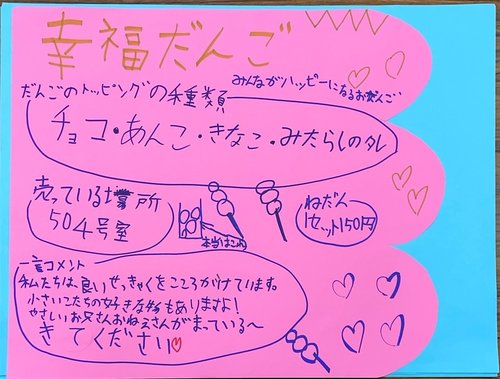 幸福だんご
みんながハッピーになるおだんご
だんごのトッピングの種類
チョコ・あんこ・きなこ・みたらしのタレ
売っている場所
504号室
本当はこれ
ねだん
1セット150円
一言コメント
私たちは良いせっきゃくをこころがけています。
小さいこたちの好きな物もありますよ!
やさしいお兄さんおねえさんがまっている〜
きてください♡